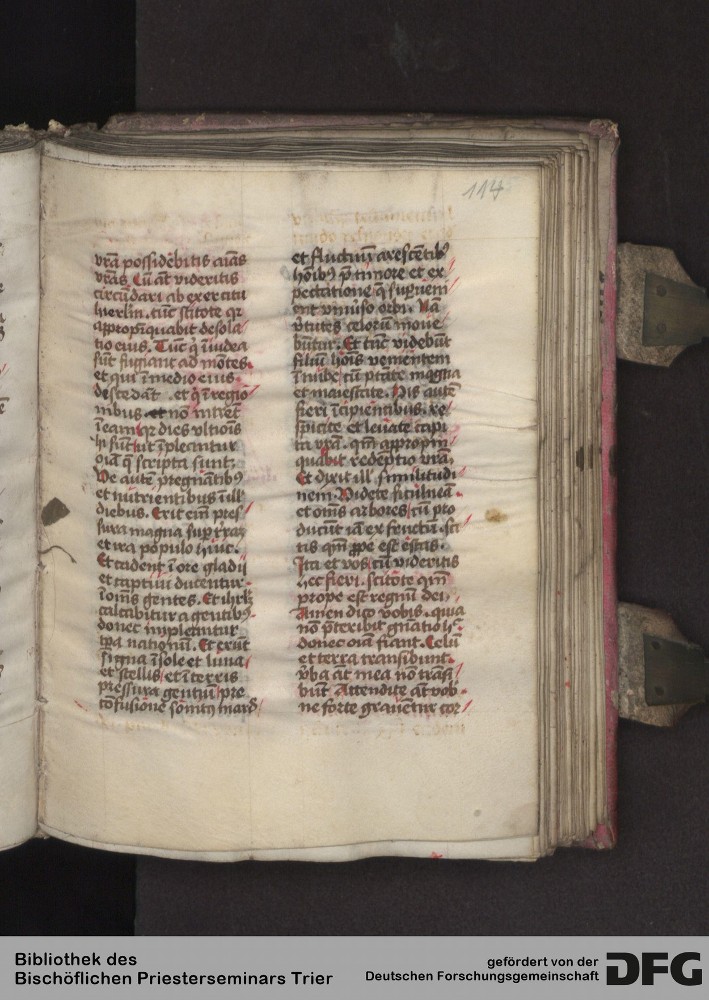 114
vrām possidebitis aīas
vrās. Cū āt videritis
circūdari ab exercitu
hierlm. tūc scitote qr
appropīquabit desola
tio eius. Tūc q̄ ī iudea
sūt fugiant ad mōtes.
et qui ī medio eius.
descēdāt. et q̄ ī regio
nibus et nō intrēt
ī eam qr dies vltiōis
hi sūt ut īpleantur
oīa q̄ scripta sunt.
Ve autē pregnātibꝰ
et nutrientibus ī ill
diebus. Erit eīm pres
sura magna sup trāz
et ira populo huic.
Et cadent ī ore gladii
et captiui ducentur.
ī oms gentes. Et ihrlm
calcabitur a gentibꝰ
donec impleantur
tpa nationū. Et erūt
signa ī sole et luna
et stellis et ī terris
pressura gentiū pre
cōfusione sonitꝰ maris
et fluctuū arescētibꝰ
hoībꝰ p̄ timore et ex
pectatione q̄ supueni
ent vniuso orbi. Nā
v̄tutes celorū moue
būtur. Et tūc videbūt
filiū hoīs venientem
ī nube cū ptāte magna
et maiestate. His autē
fieri īcipientibus. re
spicite et leuate capi
ta vrā. qm̄ appropin
quabit redēptio vrā.
Et dixit ill similitudi
nem. Videte ficulneā.
et om̄s arbores cū pro
ducūt iā ex se fructū. sci
tis qm̄ ꝓpe est estas.
Ita et vos cū videritis
hec fieri. scitote qm̄
prope est regnū dei.
Amen dico vobis. quia
nō p̄teribit gnatio h̄.
donec oīa fiant. Celū
et terra transibunt.
v̄ba āt mea nō transi
būt. Attendite āt vob̄.
ne forte grauentur cor
Bibliothek des
Bischöflichen Priesterseminars Trier
gefördert von der
Deutschen Forschungsgemeinschaft
DFG